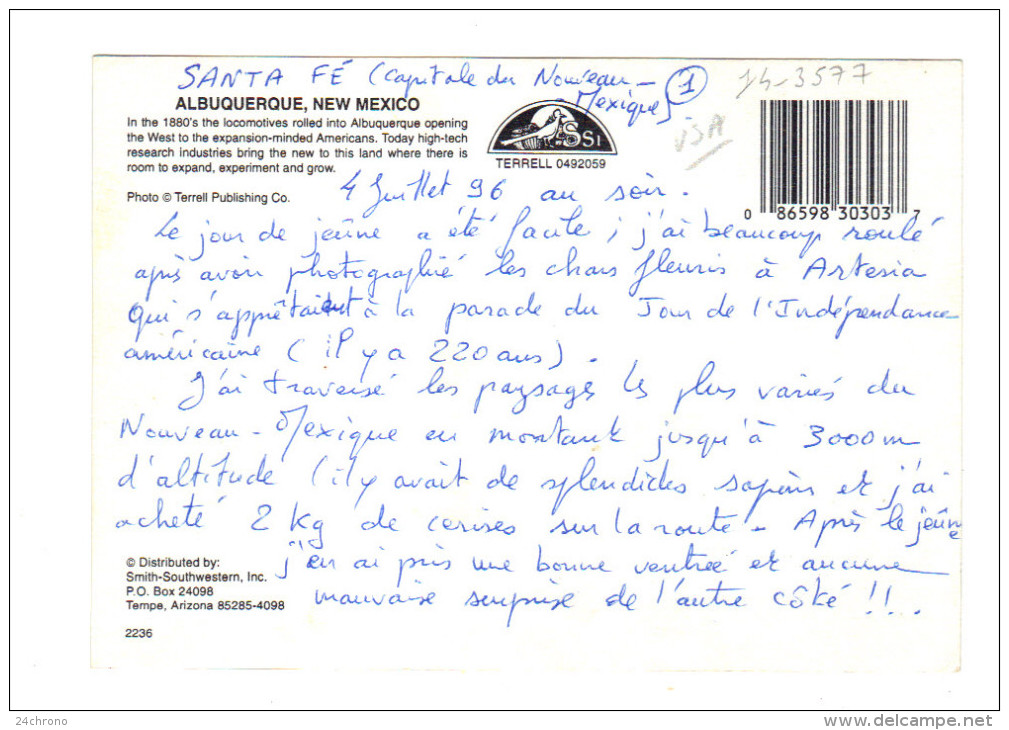 SANTA FÉ (capitale du Nouveau-
Mexique) 1
14-3577
USA
ALBUQUERQUE, NEW MEXICO
In the 1880's the locomotives rolled into Albuquerque opening
the West to the expansion-minded Americans. Today high-tech
research industries bring the new to this land where there is
room to expand, experiment and grow.
Photo © Terrell Publishing Co.
SSI
TERRELL 0492059
0 86598 30303 7
4 Juillet 96 au soir.
Le jour de jeûne a été facile ; j'ai beaucoup roulé
après avoir photographié les chars fleuris à Artesia
qui s'apprêtaient à la parade du Jour de l'Indépendance
américaine (il y a 220 ans).
J'ai traversé les paysages les plus variés du
Nouveau-Mexique en montant jusqu'à 3000m
d'altitude (il y avait de splendides sapins et j'ai
acheté 2 kg de cerises sur la route - Après le jeûne
j'en ai pris une bonne ventrée et aucune
mauvaise surprise de l'autre côté !!...
© Distributed by:
Smith-Southwestern, Inc.
P.O. Box 24098
Tempe, Arizona 85285-4098
2236
24chrono
www.delcampe.net